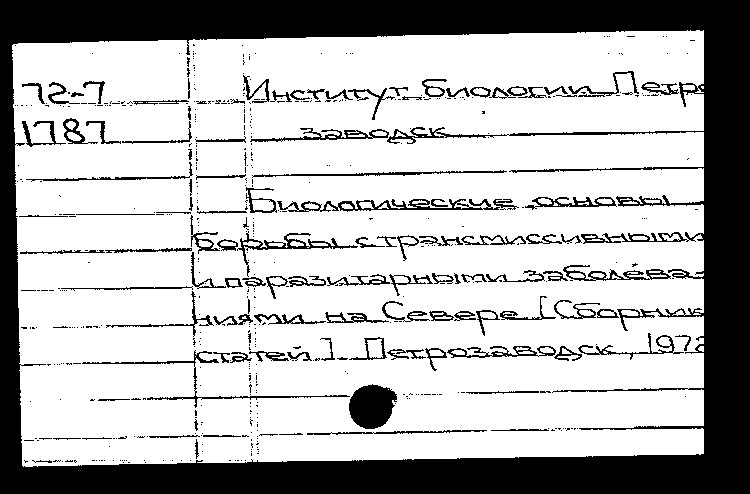 72-7
1787
Институт биологии Петро
заводск
Биологические основы
борьбы с трансмиссивными
и паразитарными заболева-
ниями на Севере [Сборник
статей]. Петрозаводск, 1972